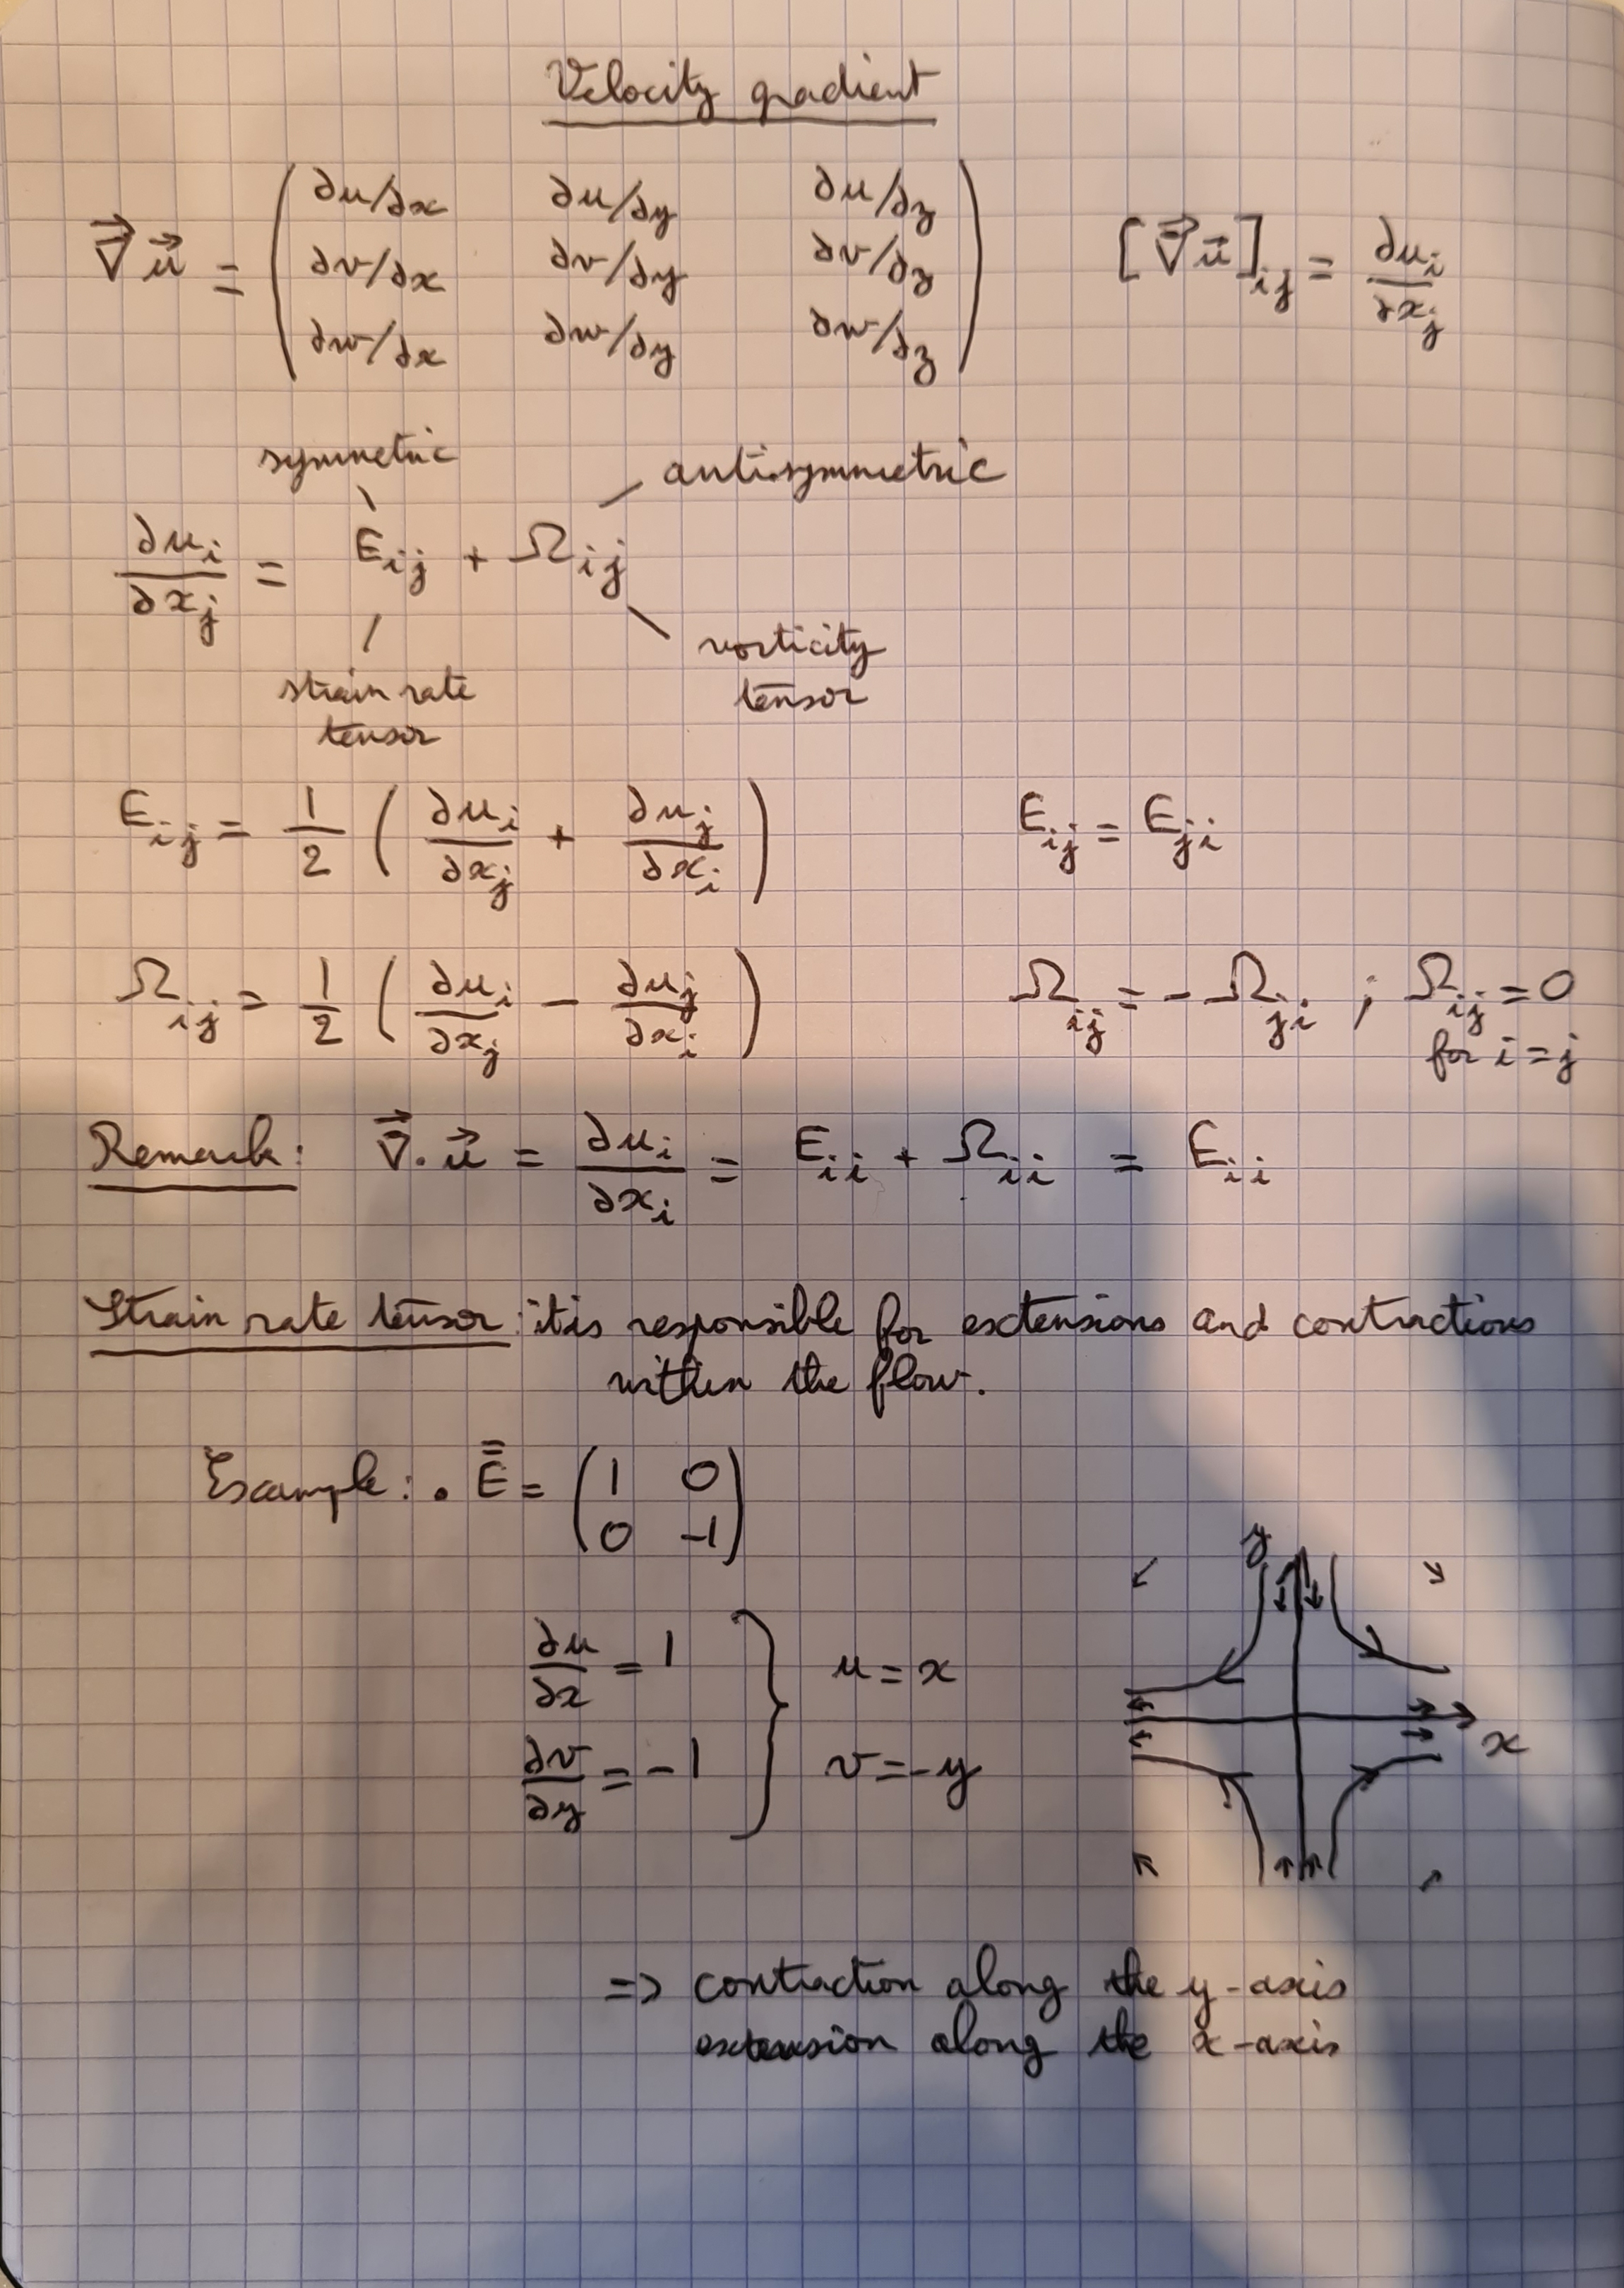 Velocity gradient
∇⃗ u⃗ = ( ∂u/∂x ∂u/∂y ∂u/∂z
∂v/∂x ∂v/∂y ∂v/∂z
∂w/∂x ∂w/∂y ∂w/∂z ) [∇⃗ u⃗]ij = ∂ui/∂xj
symmetric antisymmetric
∂ui/∂xj = Eij + Ωij
strain rate tensor
vorticity tensor
Eij = 1/2 ( ∂ui/∂xj + ∂uj/∂xi ) Eij = Eji
Ωij = 1/2 ( ∂ui/∂xj - ∂uj/∂xi ) Ωij = - Ωji ; Ωij = 0
for i = j
Remark: ∇⃗ . u⃗ = ∂ui/∂xi = Eii + Ωii = Eii
Strain rate tensor: it is responsible for extensions and contractions
within the flow.
Example: • E̿ = ( 1 0
0 -1 )
∂u/∂x = 1 } u = x
∂v/∂y = -1 } v = -y
y
x
=> contraction along the y-axis
extension along the x-axis